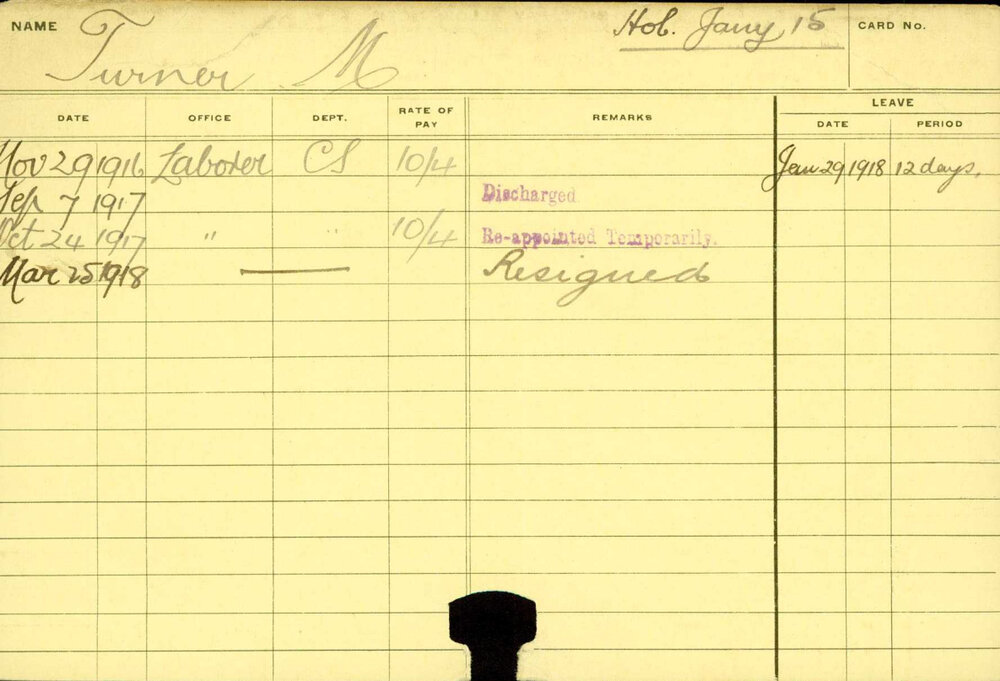 NAME Turner M Hol. Jany 15 CARD No.
LEAVE
DATE OFFICE DEPT. RATE OF PAY REMARKS DATE PERIOD
Nov 29 1916 Laborer CS 10/4 Jan 29 1918 12 days.
Sep 7 1917 Discharged
Oct 24 1917 " " 10/4 Re-appointed Temporarily.
Mar 25 1918 Resigned